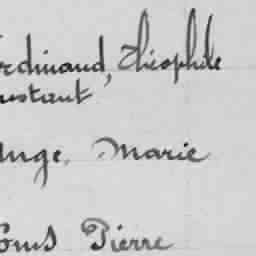 rdinand, Théophile
nstant
Ange, Marie
ouis Pierre